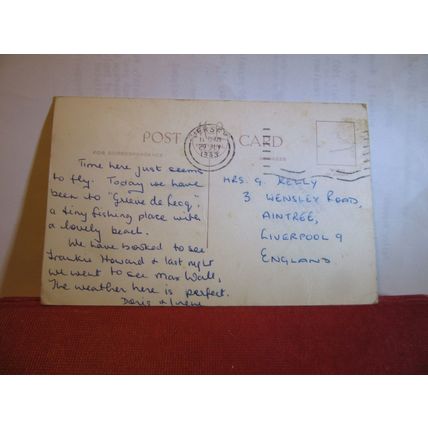 POST CARD
FOR CORRESPONDENCE
JERSEY
29 JLY
1955
Time here just seems
to fly. Today we have
been to "Greve de Lecq",
a tiny fishing place with
a lovely beach.
We have booked to see
Frankie Howard & last night
we went to see Max Wall,
The weather here is perfect.
Doris & Irene
MRS. G. REELY
3 WENSLEY ROAD,
AINTREE,
LIVERPOOL 9
ENGLAND